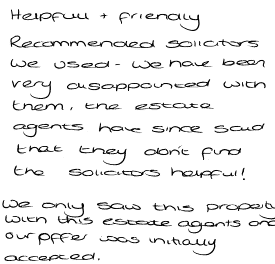 Helpfull + friendly
Recommended solicitors
we used - we have been
very disappointed with
them, the estate
agents have since said
that they don't find
the solicitors helpful!
We only saw this property
with this estate agents and
our offer was initially
accepted.